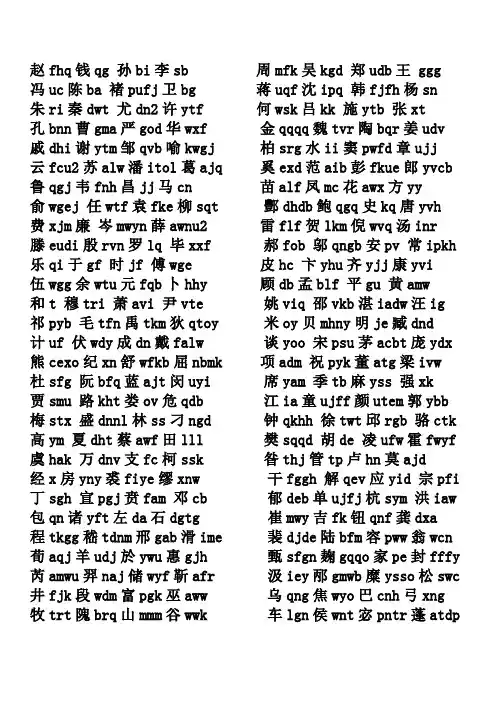 赵 fhq 钱 qg 孙 bi 李 sb 周 mfk 吴 kgd 郑 udb 王 ggg
冯 uc 陈 ba 褚 pufj 卫 bg 蒋 uqf 沈 ipq 韩 fjfh 杨 sn
朱 ri 秦 dwt 尤 dn2 许 ytf 何 wsk 吕 kk 施 ytb 张 xt
孔 bnn 曹 gma 严 god 华 wxf 金 qqqq 魏 tvr 陶 bqr 姜 udv
戚 dhi 谢 ytm 邹 qvb 喻 kwgj 柏 srg 水 ii 窦 pwfd 章 ujj
云 fcu2 苏 alw 潘 itol 葛 ajq 奚 exd 范 aib 彭 fkue 郎 yvcb
鲁 qgj 韦 fnh 昌 jj 马 cn 苗 alf 凤 mc 花 awx 方 yy
俞 wgej 任 wtf 袁 fke 柳 sqt 酆 dhdb 鲍 qgq 史 kq 唐 yvh
费 xjm 廉 岑 mwyn 薛 awnu2 雷 flf 贺 lkm 倪 wvq 汤 inr
滕 eudi 殷 rvn 罗 lq 毕 xxf 郝 fob 邬 qngb 安 pv 常 ipkh
乐 qi 于 gf 时 jf 傅 wge 皮 hc 卞 yhu 齐 yjj 康 yvi
伍 wgg 余 wtu 元 fqb 卜 hhy 顾 db 孟 blf 平 gu 黄 amw
和 t 穆 tri 萧 avi 尹 vte 姚 viq 邵 vkb 湛 iadw 汪 ig
祁 pyb 毛 tfn 禹 tkm 狄 qtoy 米 oy 贝 mhny 明 je 臧 dnd
计 uf 伏 wdy 成 dn 戴 falw 谈 yoo 宋 psu 茅 acbt 庞 ydx
熊 cexo 纪 xn 舒 wfkb 屈 nbmk 项 adm 祝 pyk 董 atg 梁 ivw
杜 sfg 阮 bfq 蓝 ajt 闵 uyi 席 yam 季 tb 麻 yss 强 xk
贾 smu 路 kht 娄 ov 危 qdb 江 ia 童 ujff 颜 utem 郭 ybb
梅 stx 盛 dnnl 林 ss 刁 ngd 钟 qkhh 徐 twt 邱 rgb 骆 ctk
高 ym 夏 dht 蔡 awf 田 lll 樊 sqqd 胡 de 凌 ufw 霍 fwyf
虞 hak 万 dnv 支 fc 柯 ssk 昝 thj 管 tp 卢 hn 莫 ajd
经 x 房 yny 裘 fiye 缪 xnw 干 fggh 解 qev 应 yid 宗 pfi
丁 sgh 宣 pgj 贲 fam 邓 cb 郁 deb 单 ujfj 杭 sym 洪 iaw
包 qn 诸 yft 左 da 石 dgtg 崔 mwy 吉 fk 钮 qnf 龚 dxa
程 tkgg 嵇 tdnm 邢 gab 滑 ime 裴 djde 陆 bfm 容 pww 翁 wcn
荀 aqj 羊 udj 於 ywu 惠 gjh 甄 sfgn 麹 gqqo 家 pe 封 fffy
芮 amwu 羿 naj 储 wyf 靳 afr 汲 iey 邴 gmwb 糜 ysso 松 swc
井 fjk 段 wdm 富 pgk 巫 aww 乌 qng 焦 wyo 巴 cnh 弓 xng
牧 trt 隗 brq 山 mmm 谷 wwk 车 lgn 侯 wnt 宓 pntr 蓬 atdp